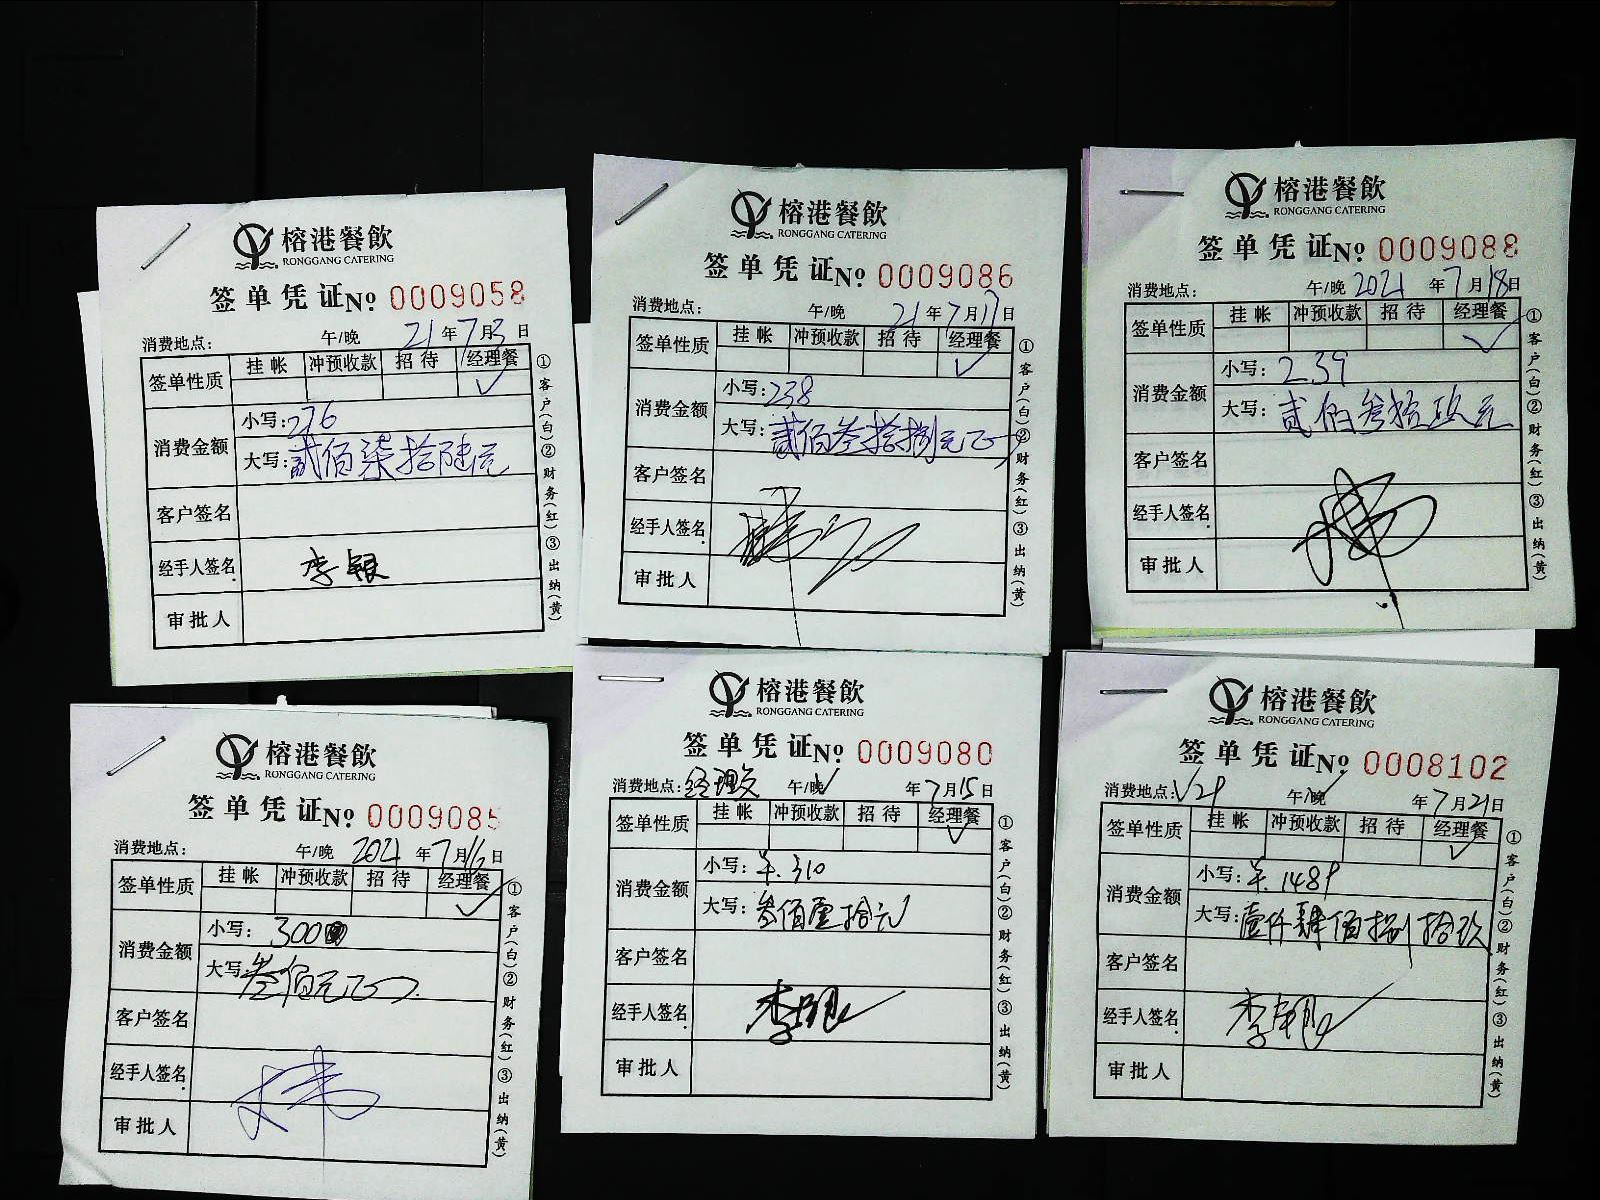 榕港餐飲
RONGGANG CATERING
签单凭证 No 0009058
消费地点: 午/晚 21年7月3日
签单性质 挂帐 冲预收款 招待 经理餐
✓
消费金额 小写:276
大写:贰佰柒拾陆元
客户签名
经手人签名 李银
审批人
①客户(白)②财务(红)③出纳(黄)
榕港餐飲
RONGGANG CATERING
签单凭证 No 0009086
消费地点: 午/晚 21年7月17日
签单性质 挂帐 冲预收款 招待 经理餐
✓
消费金额 小写:238
大写:贰佰叁拾捌元正
客户签名
经手人签名
审批人
①客户(白)②财务(红)③出纳(黄)
榕港餐飲
RONGGANG CATERING
签单凭证 No 0009088
消费地点: 午/晚 2021年7月18日
签单性质 挂帐 冲预收款 招待 经理餐
✓
消费金额 小写:239
大写:贰佰叁拾玖元
客户签名
经手人签名
审批人
①客户(白)②财务(红)③出纳(黄)
榕港餐飲
RONGGANG CATERING
签单凭证 No 0009085
消费地点: 午/晚 2021年7月16日
签单性质 挂帐 冲预收款 招待 经理餐
✓
消费金额 小写:300
大写:叁佰元正
客户签名
经手人签名
审批人
①客户(白)②财务(红)③出纳(黄)
榕港餐飲
RONGGANG CATERING
签单凭证 No 0009080
消费地点:经理 午/晚✓ 年7月15日
签单性质 挂帐 冲预收款 招待 经理餐
✓
消费金额 小写:¥.310
大写:叁佰壹拾元
客户签名
经手人签名 李银
审批人
①客户(白)②财务(红)③出纳(黄)
榕港餐飲
RONGGANG CATERING
签单凭证 No 0008102
消费地点:V29 午/晚✓ 年7月21日
签单性质 挂帐 冲预收款 招待 经理餐
✓
消费金额 小写:¥.1489
大写:壹仟肆佰捌拾玖
客户签名
经手人签名 李银
审批人
①客户(白)②财务(红)③出纳(黄)